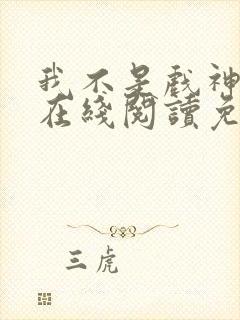 我不是戲神
在綫閱讀免
三虎